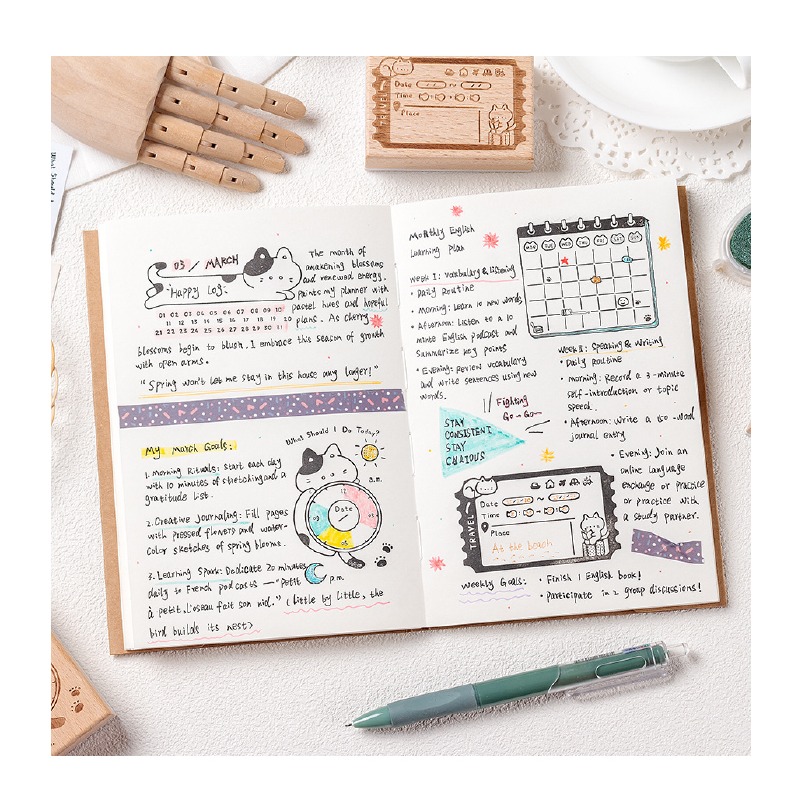 Date ~
Time
Place
TRAVEL
03 / MARCH
"Happy Log"
01 02 03 04 05 06 07 08 09 10
11 12 13 14 15 16 17 18 19 20
21 22 23 24 25 26 27 28 29 30 31
The month of
awakening blossoms
and renewed energy,
paints my planner with
pastel hues and hopeful
plans. As cherry
blossoms begin to blush, I embrace this season of growth
with open arms.
"Spring won't let me stay in this house any longer!"
My March Goals:
1. Morning Rituals: Start each day
with 10 minutes of stretching and a
gratitude list.
2. Creative Journaling: Fill pages
with pressed flowers and water-
color sketches of spring blooms.
3. Learning Spark: Dedicate 20 minutes
daily to French podcasts — "Petit
à petit, l'oseau fait son nid." (little by little, the
bird builds its nest>
What Should I Do Today?
a.m.
12
Date
p.m.
Monthly English
Learning plan
Week I: Vocabulary & Listening
• Daily Routine
• Morning: Learn 10 new words
• Afternoon: Listen to a 10
minte English podcast and
Summarize key points
• Evening: Review vocabulary
and write sentences using new
words.
SUN MON TUE WED THU FRI SAT
Fighting
Go~Go~
STAY
CONSISTENT
STAY
CURIOUS
Week II: Speaking & Writing
• Daily Routine
• morning: Record a 3-minute
self-introduction or topic
speech.
• Afternoon: Write a 150-word
journal entry
• Evening: Join an
online language
exchange or practice
or practice with
a study partner.
TRAVEL
Date ~
Time
Place
At the beach
Weekly Goals:
• Finish 1 English book!
• Participate in 2 group discussions!